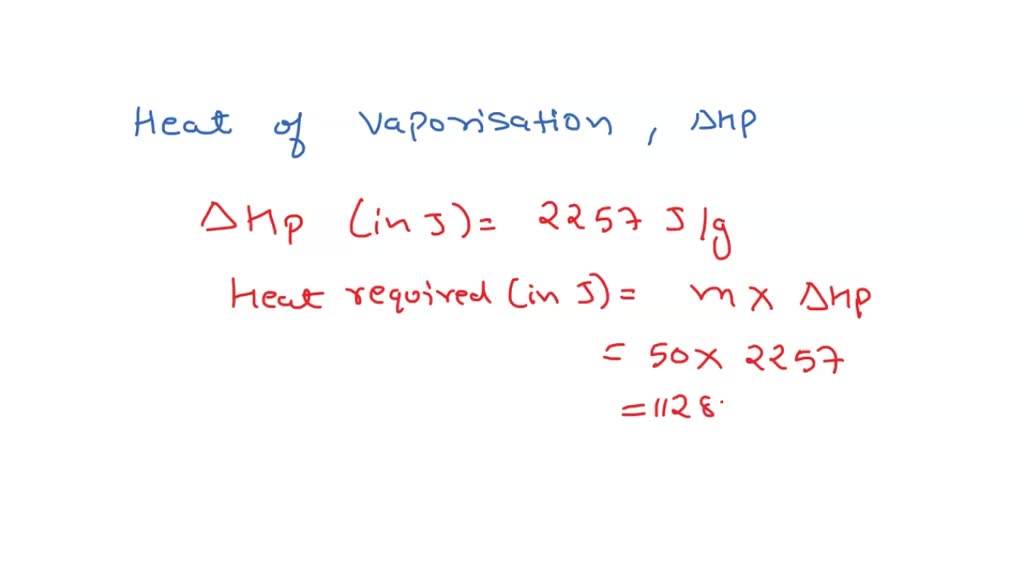 Heat of Vaporisation, ΔHp
ΔHp (in J) = 2257 J/g
Heat required (in J) = m x ΔHp
= 50 x 2257
= 1128